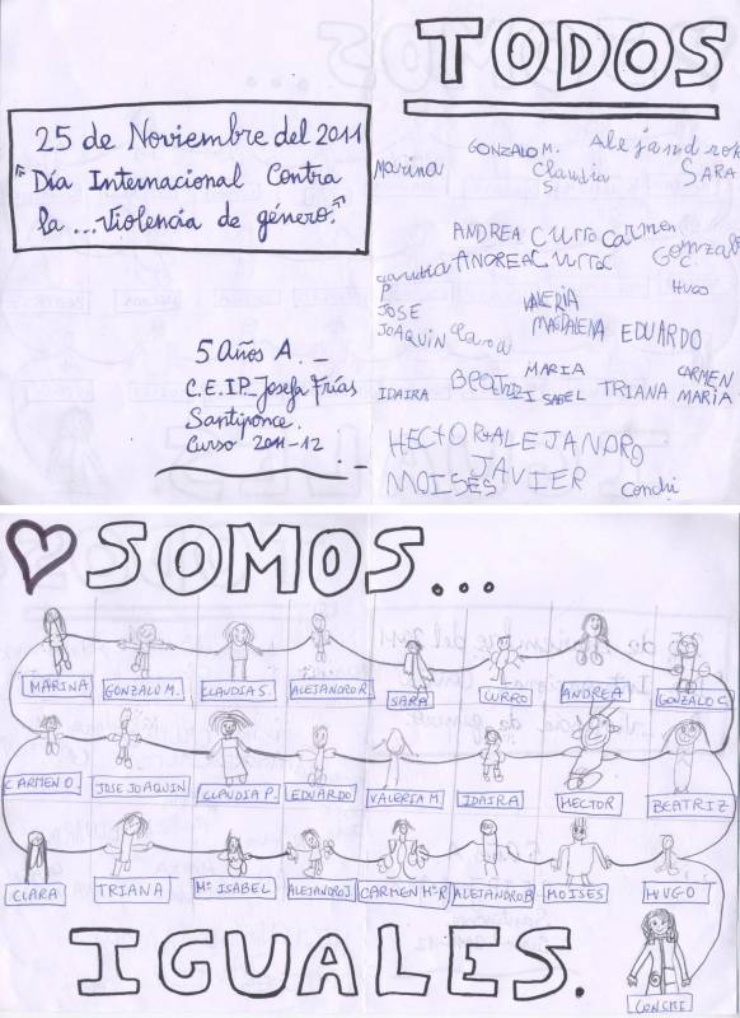 25 de Noviembre del 2011
"Día Internacional Contra
la ... Violencia de género."
5 Años A. _
C.E.I.P. Josefa Frías
Santiponce.
Curso 2011-12
TODOS
GONZALO M. Alejandro R
Marina Claudia SARA
S
ANDREA CURRO Carmen
ANDREA CURRO Gonzalo
Claudia C.
P HUGO
JOSE VALERIA
JOAQUIN Clara MAGDALENA EDUARDO
MARIA CARMEN
IDAIRA BEATRIZ ISABEL TRIANA MARIA
HECTOR ALEJANDRO
JAVIER
MOISES Conchi
SOMOS...
MARINA GONZALO M. CLAUDIA S. ALEJANDRO R. SARA CURRO ANDREA GONZALO C
CARMEN O. JOSE JOAQUIN CLAUDIA P. EDUARDO VALERIA M. IDAIRA HECTOR BEATRIZ
CLARA TRIANA Mª ISABEL ALEJANDRO J CARMEN Mª R ALEJANDRO B MOISES HUGO
IGUALES.
CONCHI